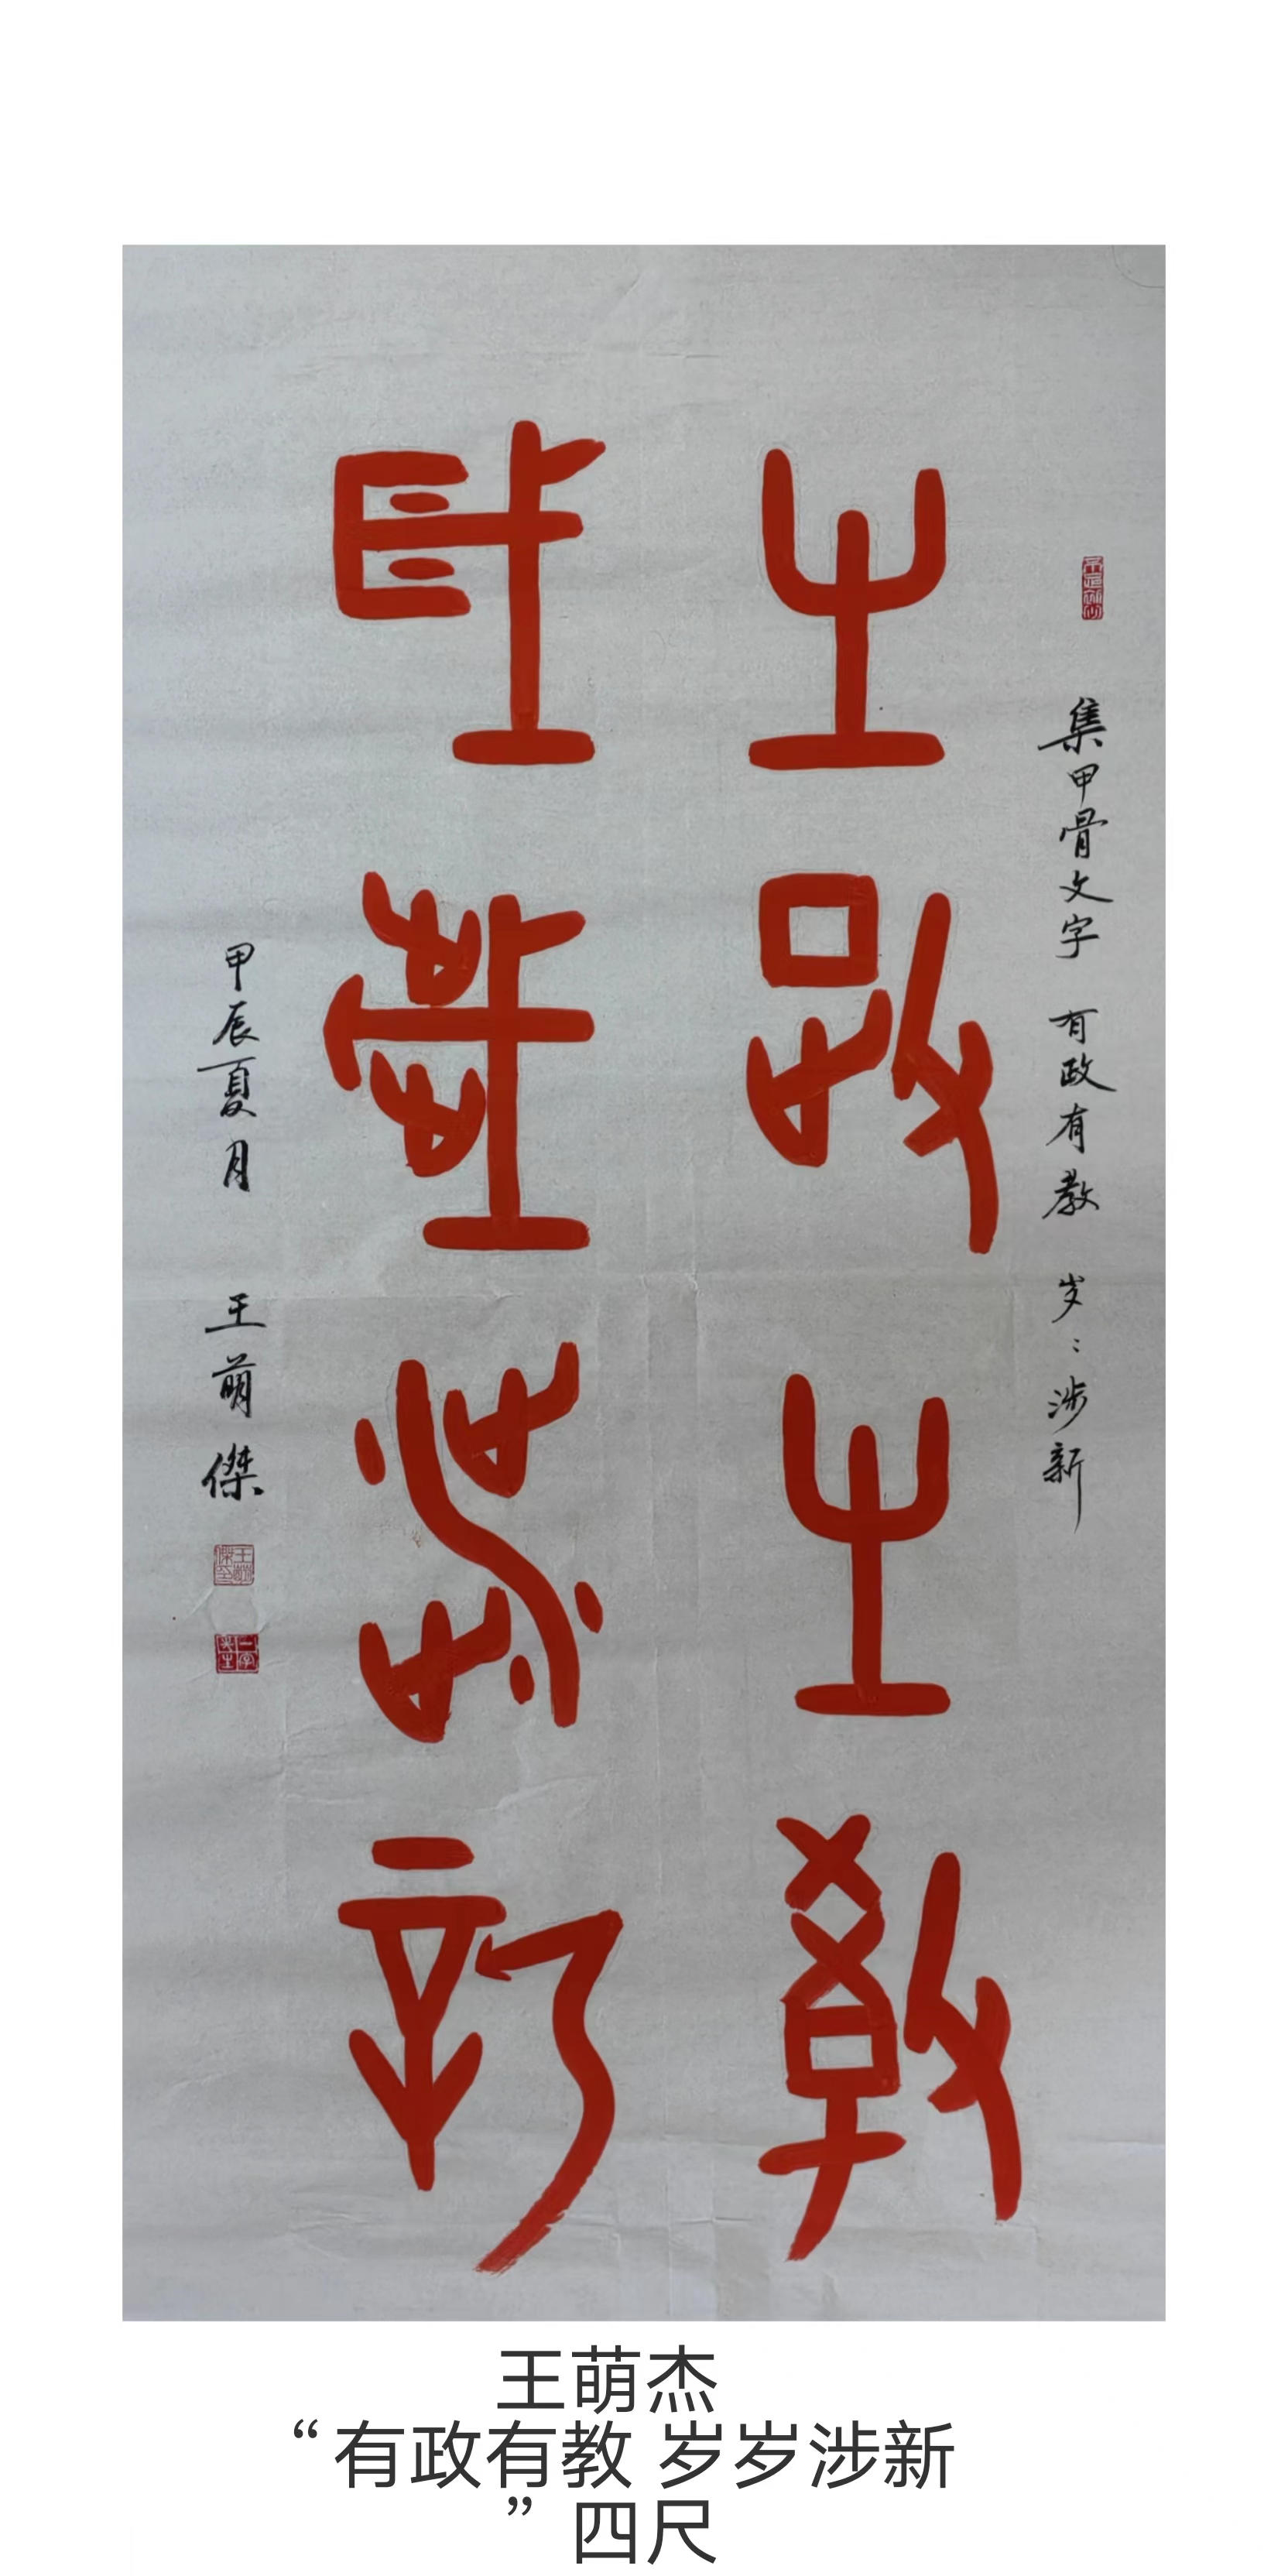 集甲骨文字 有政有教 岁：涉新
有政有教
岁岁涉新
甲辰夏月 王萌傑
王萌杰
“有政有教 岁岁涉新
”四尺